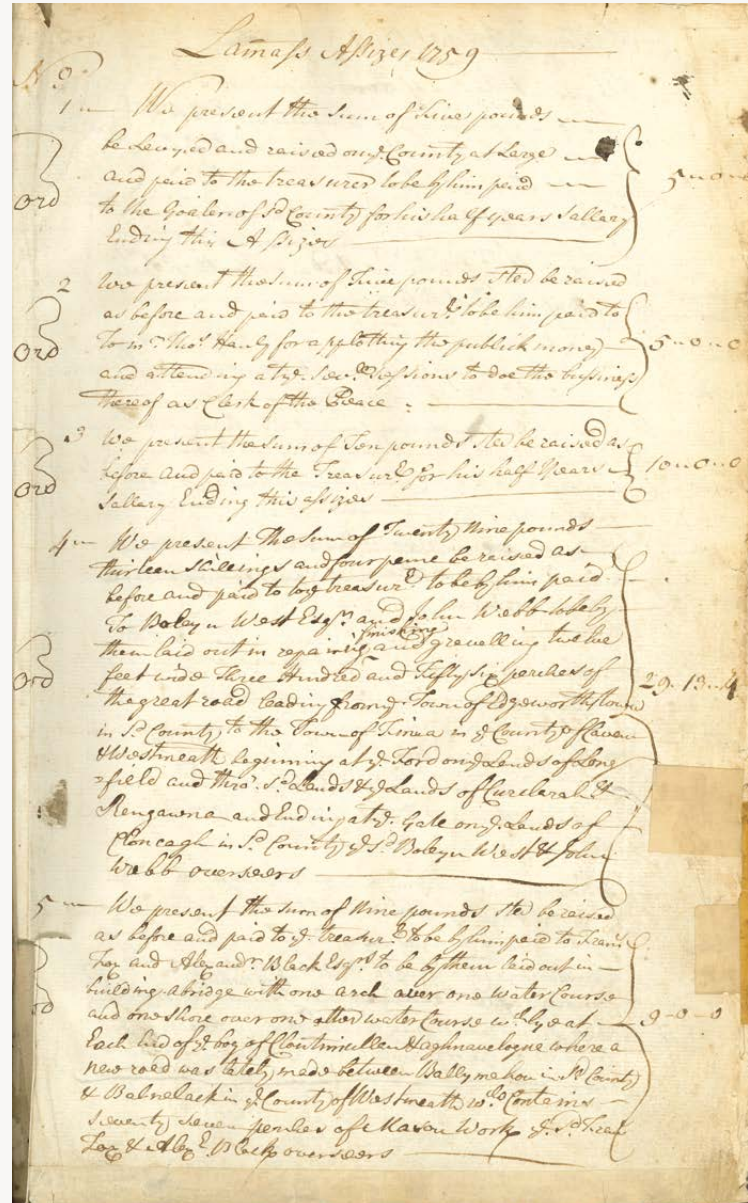 Lamass Assizes 1759
No.
1 We present the Sum of Five pounds
be Levyed and raised on ye. County at Large
Ord and paid to the treasurer to be by him paid 5-0-0
to the Goaler of sd County for his half years Sallary
Ending this Assizes
2 We present the sum of Five pounds ster be raised
as before and paid to the treasurr. to be him paid to
Ord To mr. Thos. Hanly for applotting the publick money 5-0-0
and attending at ye. sevl. Sessions to doe the bussiness
thereof as Clerk of the Peace
3 We present the sum of Ten pounds ster be raised as
Ord before and paid to the Treasurr. for his half Years 10-0-0
Sallary Ending this assizes
4 We present the Sum of Twenty Nine pounds
thirteen shillings and four pence be raised as
before and paid to ye treasurr. to be by him paid
To Boleyn West Esqr. and John Webb to be by
them laid out in repairing finishing and gravelling twelve
Ord feet wide Three Hundred and Fifty six perches of 29-13-4
the great road leading from ye. Town of Edgeworthstown
in sd. County to the Town of Finea in ye County of Cavan
& Westmeath beginning at ye. Ford on ye Lands of Long
=field and thro'. sd. Lands & ye Lands of &
and Ending at ye. Gate on ye. Lands of
Cloncagh in sd. County ye sd. Boleyn West & John
Webb overseers
5 We present the sum of Nine pounds ster be raised
as before and paid to ye. treasurr. to be by him paid to Frans
Fox and Alexandr. Black Esqrs. to be by them laid out in
building a bridge with one arch over one water Course
Ord and one shore over one other water Course wch. lye at 9-0-0
Each End of ye bog of & where a
new road was lately made between Ballymahon in sd. County
& Balnelack in ye County of Westmeath wch. Contains
seventy seven perches of Mason Work ye. sd. Fran
Fox & Alexr. Black overseers